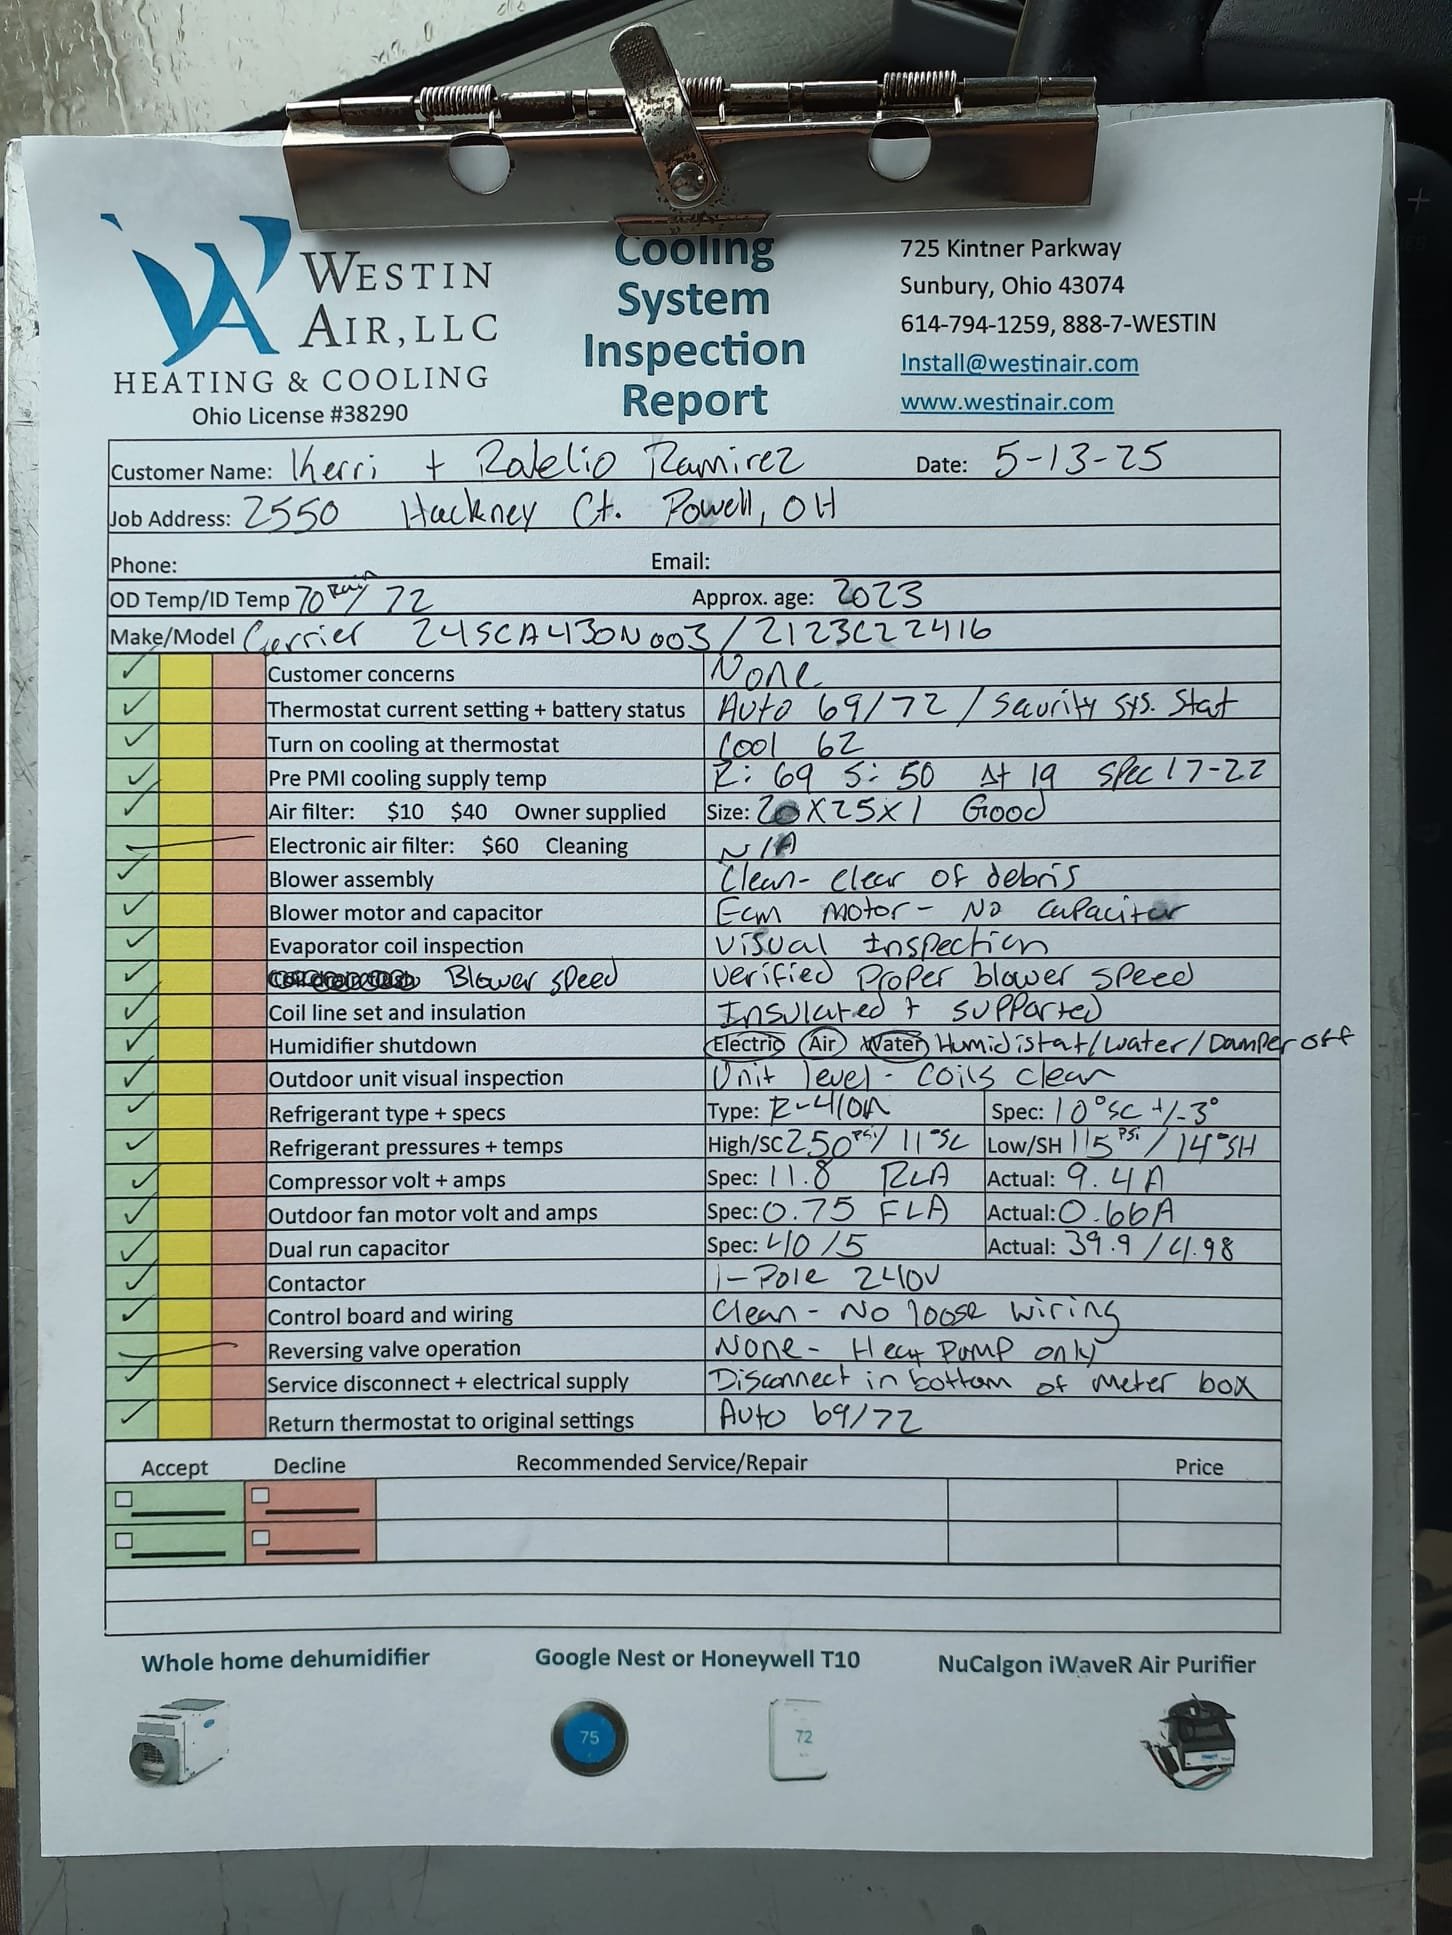 WESTIN
AIR, LLC
HEATING & COOLING
Ohio License #38290
Cooling
System
Inspection
Report
725 Kintner Parkway
Sunbury, Ohio 43074
614-794-1259, 888-7-WESTIN
Install@westinair.com
www.westinair.com
Customer Name: Kerri + Rafelio Ramirez Date: 5-13-25
Job Address: 2550 Hackney Ct. Powell, OH
Phone: Email:
OD Temp/ID Temp 70 Rain / 72 Approx. age: 2023
Make/Model Carrier 24SCA430N003 / 2123C22416
Customer concerns None
Thermostat current setting + battery status Auto 69/72 / Saurity sys. Stat
Turn on cooling at thermostat Cool 62
Pre PMI cooling supply temp R: 69 S: 50 Δt 19 Spec 17-22
Air filter: $10 $40 Owner supplied Size: 20x25x1 Good
Electronic air filter: $60 Cleaning N/A
Blower assembly Clean- clear of debris
Blower motor and capacitor Ecm motor - No capacitor
Evaporator coil inspection Visual Inspection
Blower speed Verified Proper blower speed
Coil line set and insulation Insulated + supported
Humidifier shutdown Electric Air Water Humidistat/Water/Damper off
Outdoor unit visual inspection Unit level - Coils clean
Refrigerant type + specs Type: R-410A Spec: 10°SC +/-3°
Refrigerant pressures + temps High/SC 250 psi / 11°SC Low/SH 115 psi / 14°SH
Compressor volt + amps Spec: 11.8 RLA Actual: 9.4A
Outdoor fan motor volt and amps Spec: 0.75 FLA Actual: 0.66A
Dual run capacitor Spec: 40/5 Actual: 39.9 / 4.98
Contactor 1-Pole 240V
Control board and wiring Clean - No loose wiring
Reversing valve operation None- Heat Pump only
Service disconnect + electrical supply Disconnect in bottom of meter box
Return thermostat to original settings Auto 69/72
Accept Decline Recommended Service/Repair Price
Whole home dehumidifier Google Nest or Honeywell T10 NuCalgon iWaveR Air Purifier
75 72